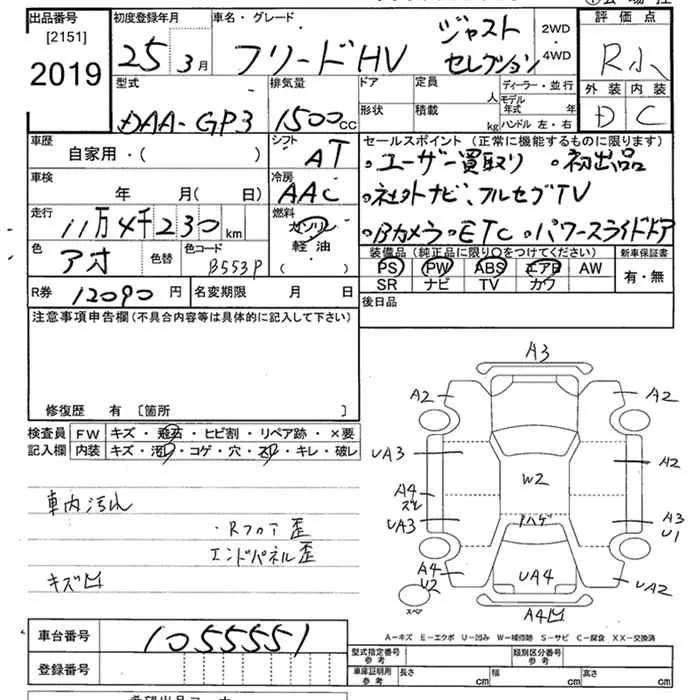 出品番号 初度登録年月 車名・グレード 評価点
[2151]
2019
25 3月 フリードHV ジャスト セレクション 2WD・4WD R小
型式 排気量 ドア 定員 人 ディーラー・並行 外装 内装
DAA-GP3 1500cc 形状 積載 kg モデル年式 年 ハンドル 左・右 D C
車歴 自家用・( ) シフト AT
セールスポイント(正常に機能するものに限ります)
・ユーザー買取り ・初出品
・社外ナビ、フルセグTV
・Bカメラ・ETC・パワースライドドア
車検 年 月(日) 冷房 AAC
走行 11万4千230km 燃料 ガソリン 軽油 ( )
色 アオ 色替 色コード B553P
装備品(純正品に限り○をつけてください) 新車保証書
PS PW ABS エアB AW 有・無
SR ナビ TV カワ
R券 12090円 名変期限 月 日
後日品
注意事項申告欄(不具合内容等は具体的に記入して下さい)
修復歴 有 [箇所 ]
検査員 FW キズ・飛石・ヒビ割・リペア跡・×要
記入欄 内装 キズ・汚れ・コゲ・穴・スレ・キレ・破レ
車内汚れ
・Rフロア歪
エンドパネル歪
キズ凹
A3
A2 A2
UA3 W2 A2
A4 ズレ
UA3 ハゲ A3 U1
A4 U2 UA4 UA2
スペア
A4凹
A-キズ E-エクボ U-凹み W-補修跡 S-サビ C-腐食 XX-交換済
車台番号 1055551
型式指定番号 参考 類別区分番号 参考
登録番号 車庫証明用 参考 長さ cm 幅 cm 高さ cm